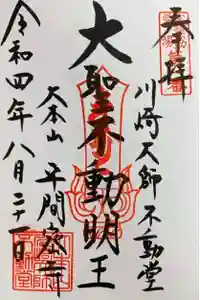 奉拝
川崎大師不動堂
大聖不動明王
大本山平間寺
令和四年八月二十一日